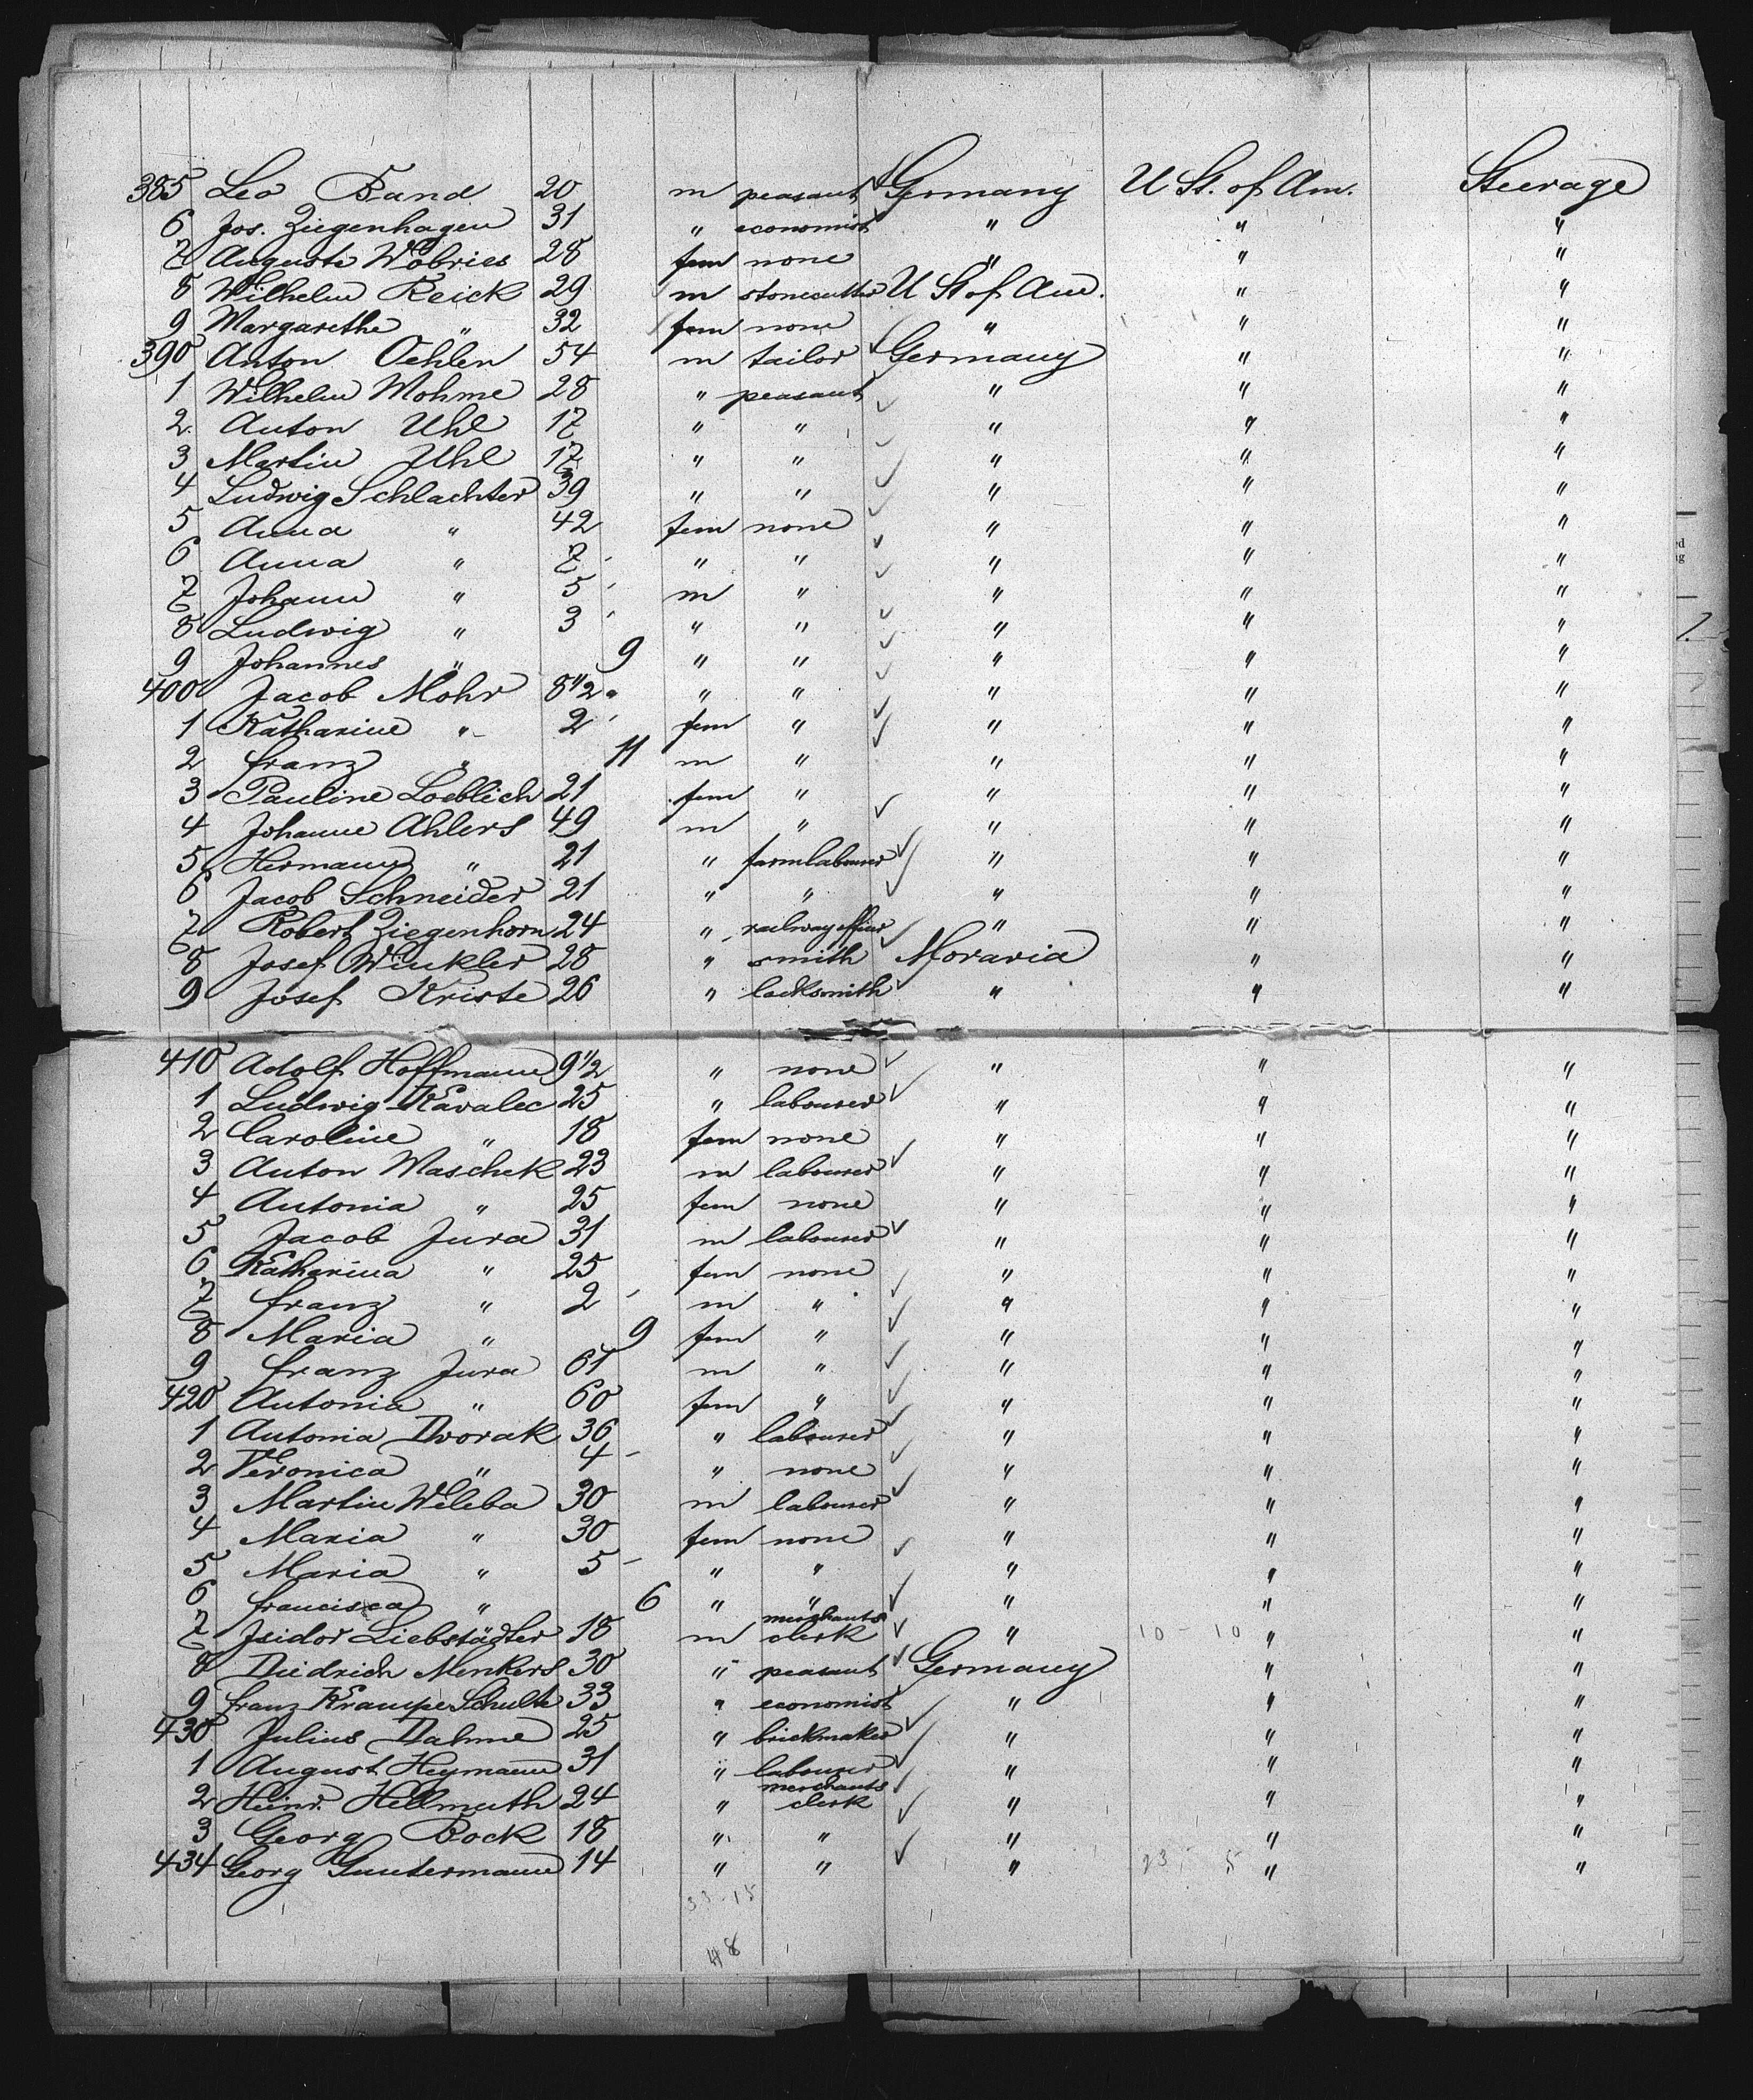 385 Leo Band 20 m peasant Germany U St. of Am. Steerage
6 Jos. Ziegenhagen 31 " economist " " "
7 Auguste Wobries 28 fem none " " "
8 Wilhelm Reick 29 m stonecutter U St of Am. " "
9 Margarethe " 32 fem none " " "
390 Anton Oehlen 54 m tailor Germany " "
1 Wilhelm Mohme 28 " peasant " " "
2. Anton Uhl 17 " " " " "
3 Martin Uhl 17 " " " " "
4 Ludwig Schlachter 39 " " " " "
5 Anna " 42 fem none " " "
6 Anna " 7 " " " " "
7 Johann " 5 m " " " "
8 Ludwig " 3 " " " " "
9 Johannes " 9 " " " " "
400 Jacob Mohr 8 1/2 " " " " "
1 Katharine " 2 fem " " " "
2 Franz " 11 m " " " "
3 Pauline Loeblich 21 fem " " " "
4 Johanne Ahlers 49 m " " " "
5 Hermann " 21 " farmlabourer " " "
6 Jacob Schneider 21 " " " " "
7 Robert Ziegenhorn 24 " railwayofficer " " "
8 Josef Winkler 28 " smith Moravia " "
9 Josef Kriste 26 " locksmith " " "
410 Adolf Hoffmann 9 1/2 " none " " "
1 Ludwig Kavalec 25 " labourer " " "
2 Caroline " 18 fem none " " "
3 Anton Maschek 23 m labourer " " "
4 Antonia " 25 fem none " " "
5 Jacob Jura 31 m labourer " " "
6 Katharina " 25 fem none " " "
7 Franz " 2 m " " " "
8 Maria " 9 fem " " " "
9 Franz Jura 61 m " " " "
420 Antonia " 60 fem " " " "
1 Antonia Dvorak 36 " labourer " " "
2 Veronica " 4 " none " " "
3 Martin Weleba 30 m labourer " " "
4 Maria " 30 fem none " " "
5 Maria " 5 " " " " "
6 Francisca " 6 " " " " "
7 Isidor Liebstädter 18 m merchants clerk " 10 - 10 " "
8 Diedrich Menkers 30 " peasant Germany " "
9 Franz Krampe Schulte 33 " economist " " "
430 Julius Dahme 25 " brickmaker " " "
1 August Heymann 31 " labourer " " "
2 Heinr. Hellmuth 24 " merchants clerk " " "
3 Georg Bock 18 " " " " "
434 Georg Guntermann 14 " " " 23 - 5 " "
33-15
48